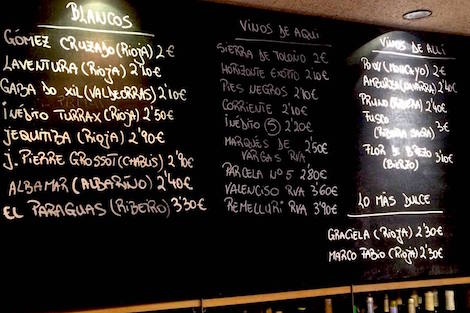 BLANCOS
GÓMEZ CRUZADO (RIOJA) 2€
LAVENTURA (RIOJA) 2'10€
GABA DO XIL (VALDEORRAS) 2'10€
INÉDITO TURRAX (RIOJA) 2'50€
JEQUITIBA (RIOJA) 2'90€
J. PIERRE GROSSOT (CHABLIS) 2'80€
ALBAMAR (ALBARIÑO) 2'40€
EL PARAGUAS (RIBEIRO) 3'30€
VINOS DE AQUI
SIERRA DE TOLOÑO 2€
HORIZONTE EXOTTO 2'10€
PIES NEGROS 2'10€
CORRIENTE 2'10€
INÉDITO (5) 2'20€
MARQUES DE VARGAS RVA 2'50€
PARCELA Nº5 2'80€
VALENCISO RVA 3'60€
REMELLURI RVA 3'90€
VINOS DE ALLI
2€
2'10€
2'40€
FUSCO (RIBEIRA SACRA) 3€
FLOR DE BREZO (BIERZO) 3'10€
LO MÁS DULCE
GRACIELA (RIOJA) 2'30€
MARCO FABIO (RIOJA) 2'30€